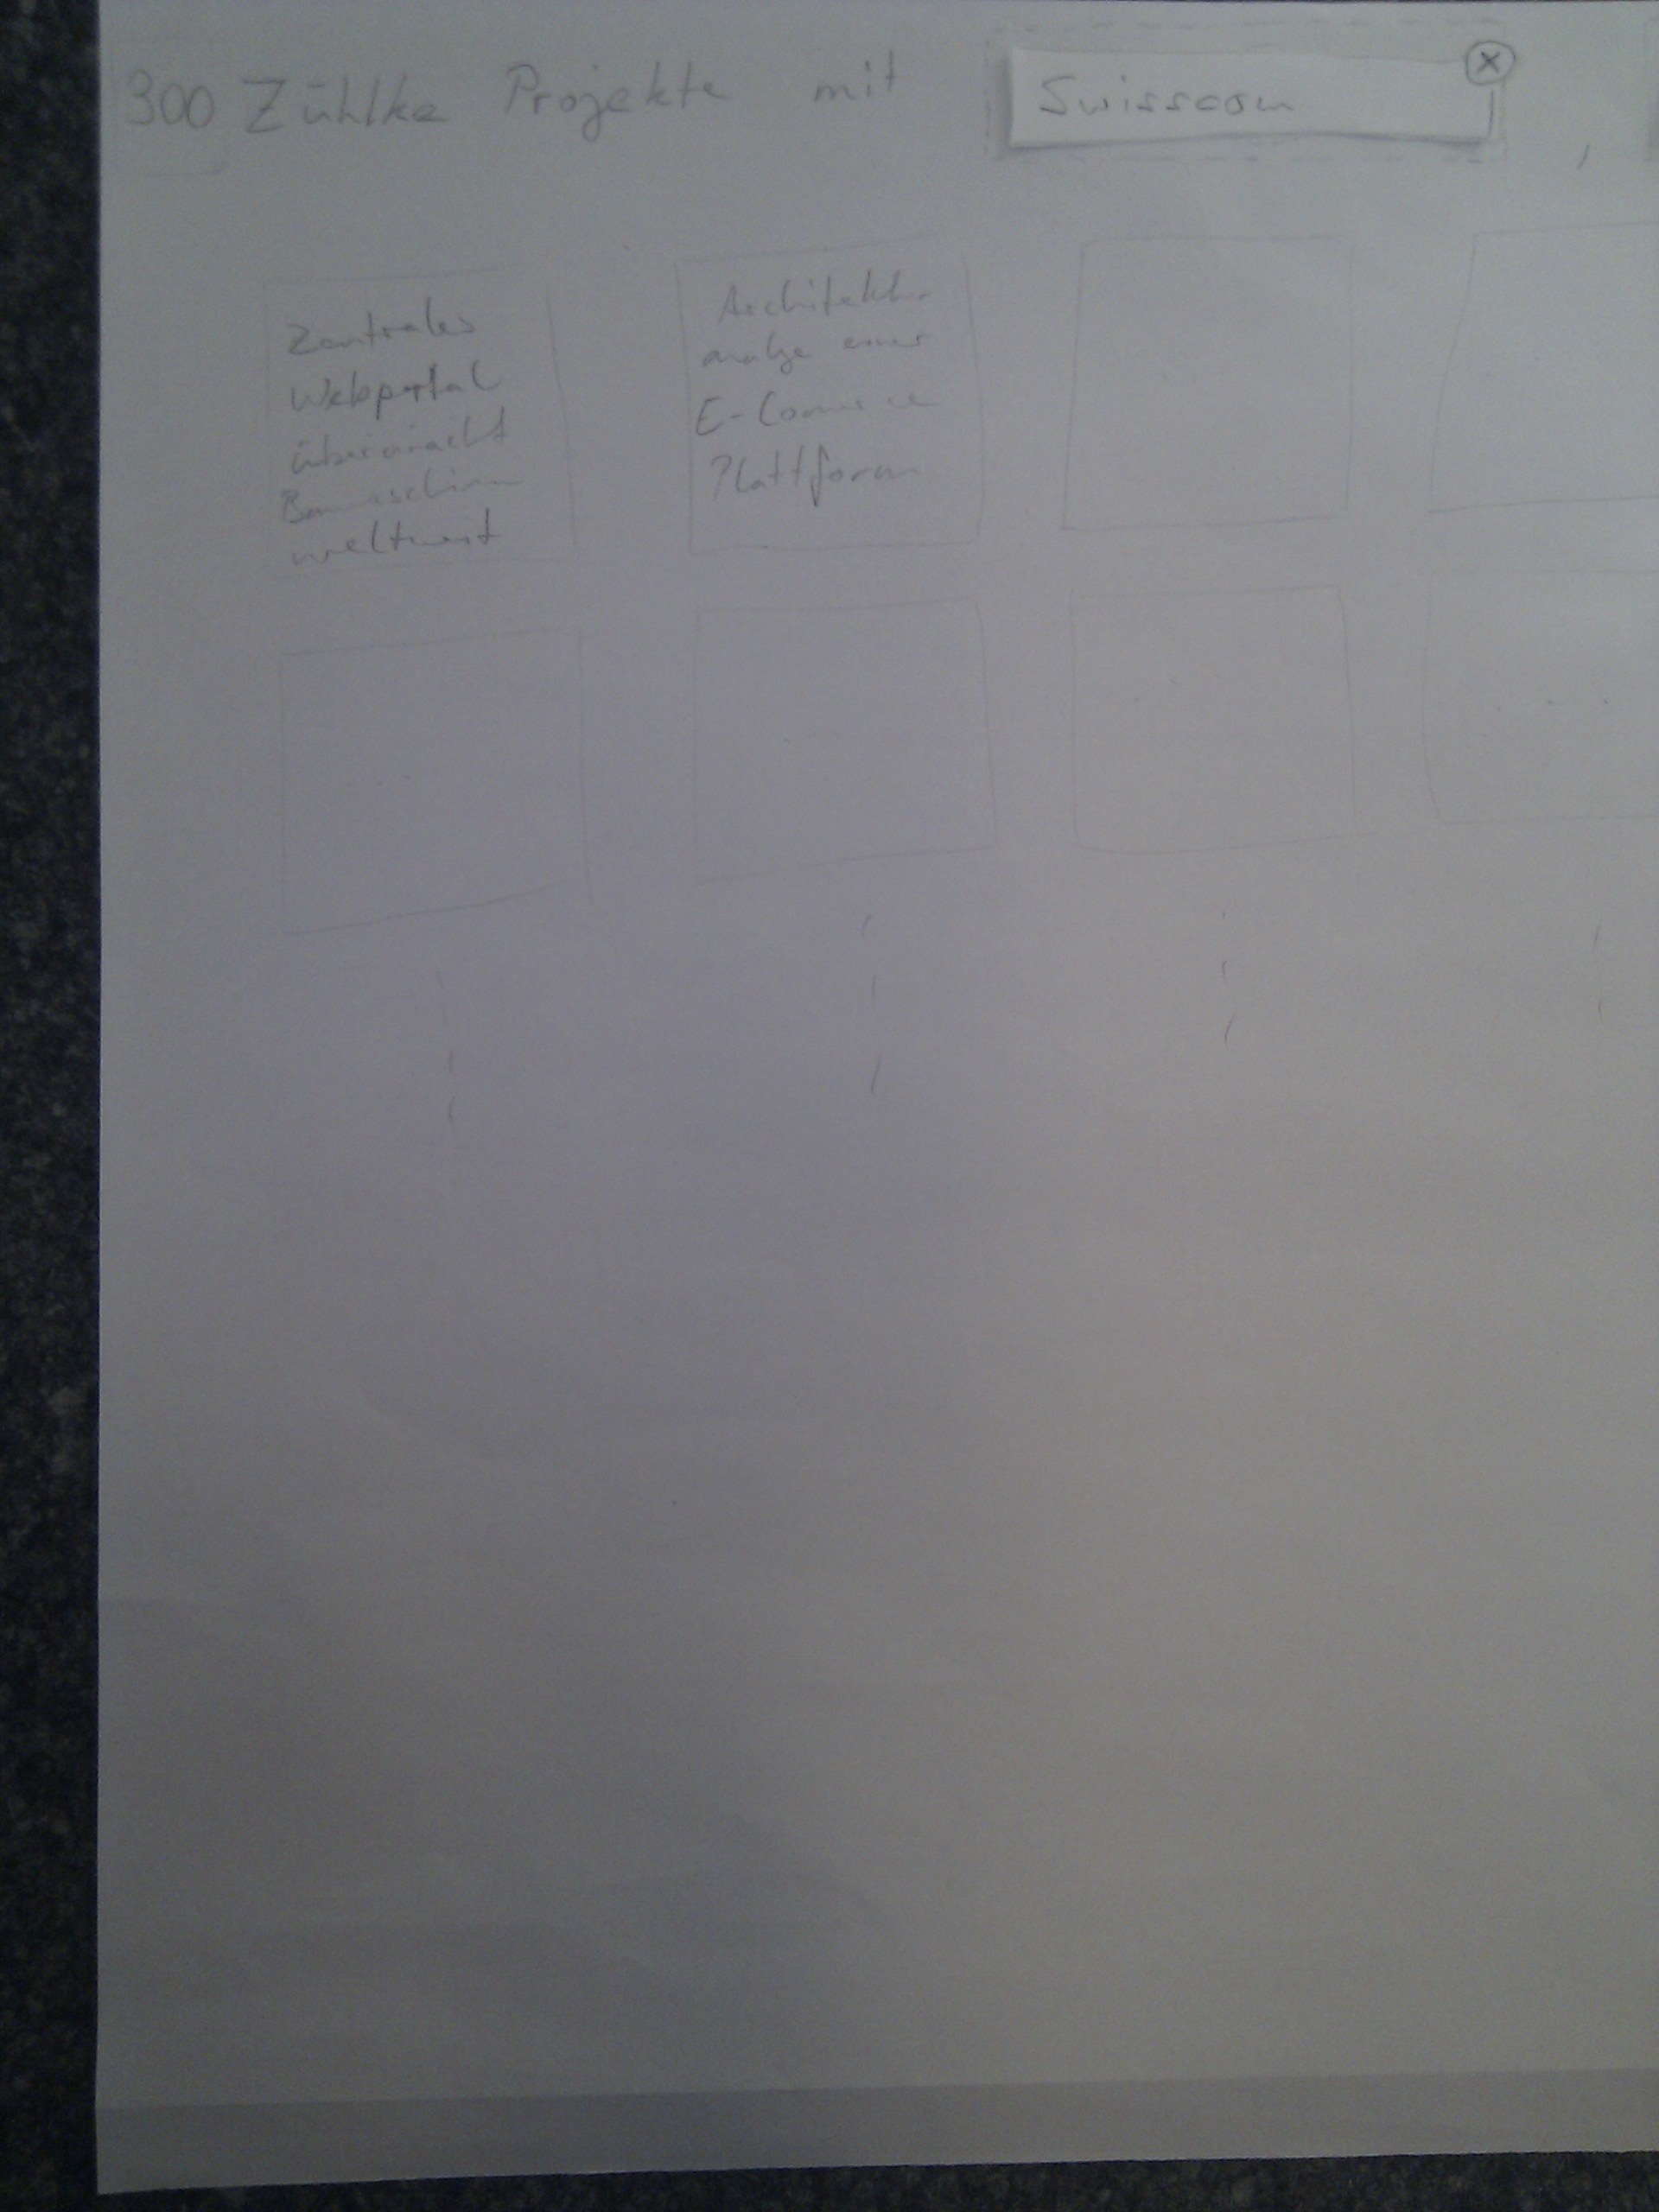 300 Zühlke Projekte mit Swisscom ⓧ ,
Zentrales
Webportal
überwacht
Baumaschinen
weltweit
Architektur
analyse einer
E-Commerce
Plattform